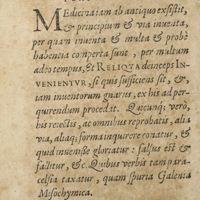 Medicina iam ab antiquo existit,
& principium & via inventa,
per quam inventa & multa & probè
habentia comperta sunt, per multum
adeo tempus, Et RELIQVA deinceps IN-
VENIENTVR, si quis sufficiens sit, &
iam inventorum gnarus, ex his ad per-
quirendum procedit. Quicunq; verò,
his reiectis, ac omnibus reprobatis, alia
via, aliaq; forma inquirere conatur, &
quid invenisse gloriatur: falsus est &
fallitur, &c. Quibus verbis tam para-
celsia taxatur, quam spuria Galenia
Misochymica.